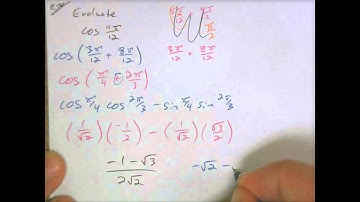 Evaluate
cos 11π/12
cos(3π/12 + 8π/12) 3π/12 + 8π/12
cos(π/4 + 2π/3)
cos π/4 cos 2π/3 - sin π/4 sin 2π/3
(1/√2)(-1/2) - (1/√2)(√3/2)
-1 - √3 / 2√2 -√2 -